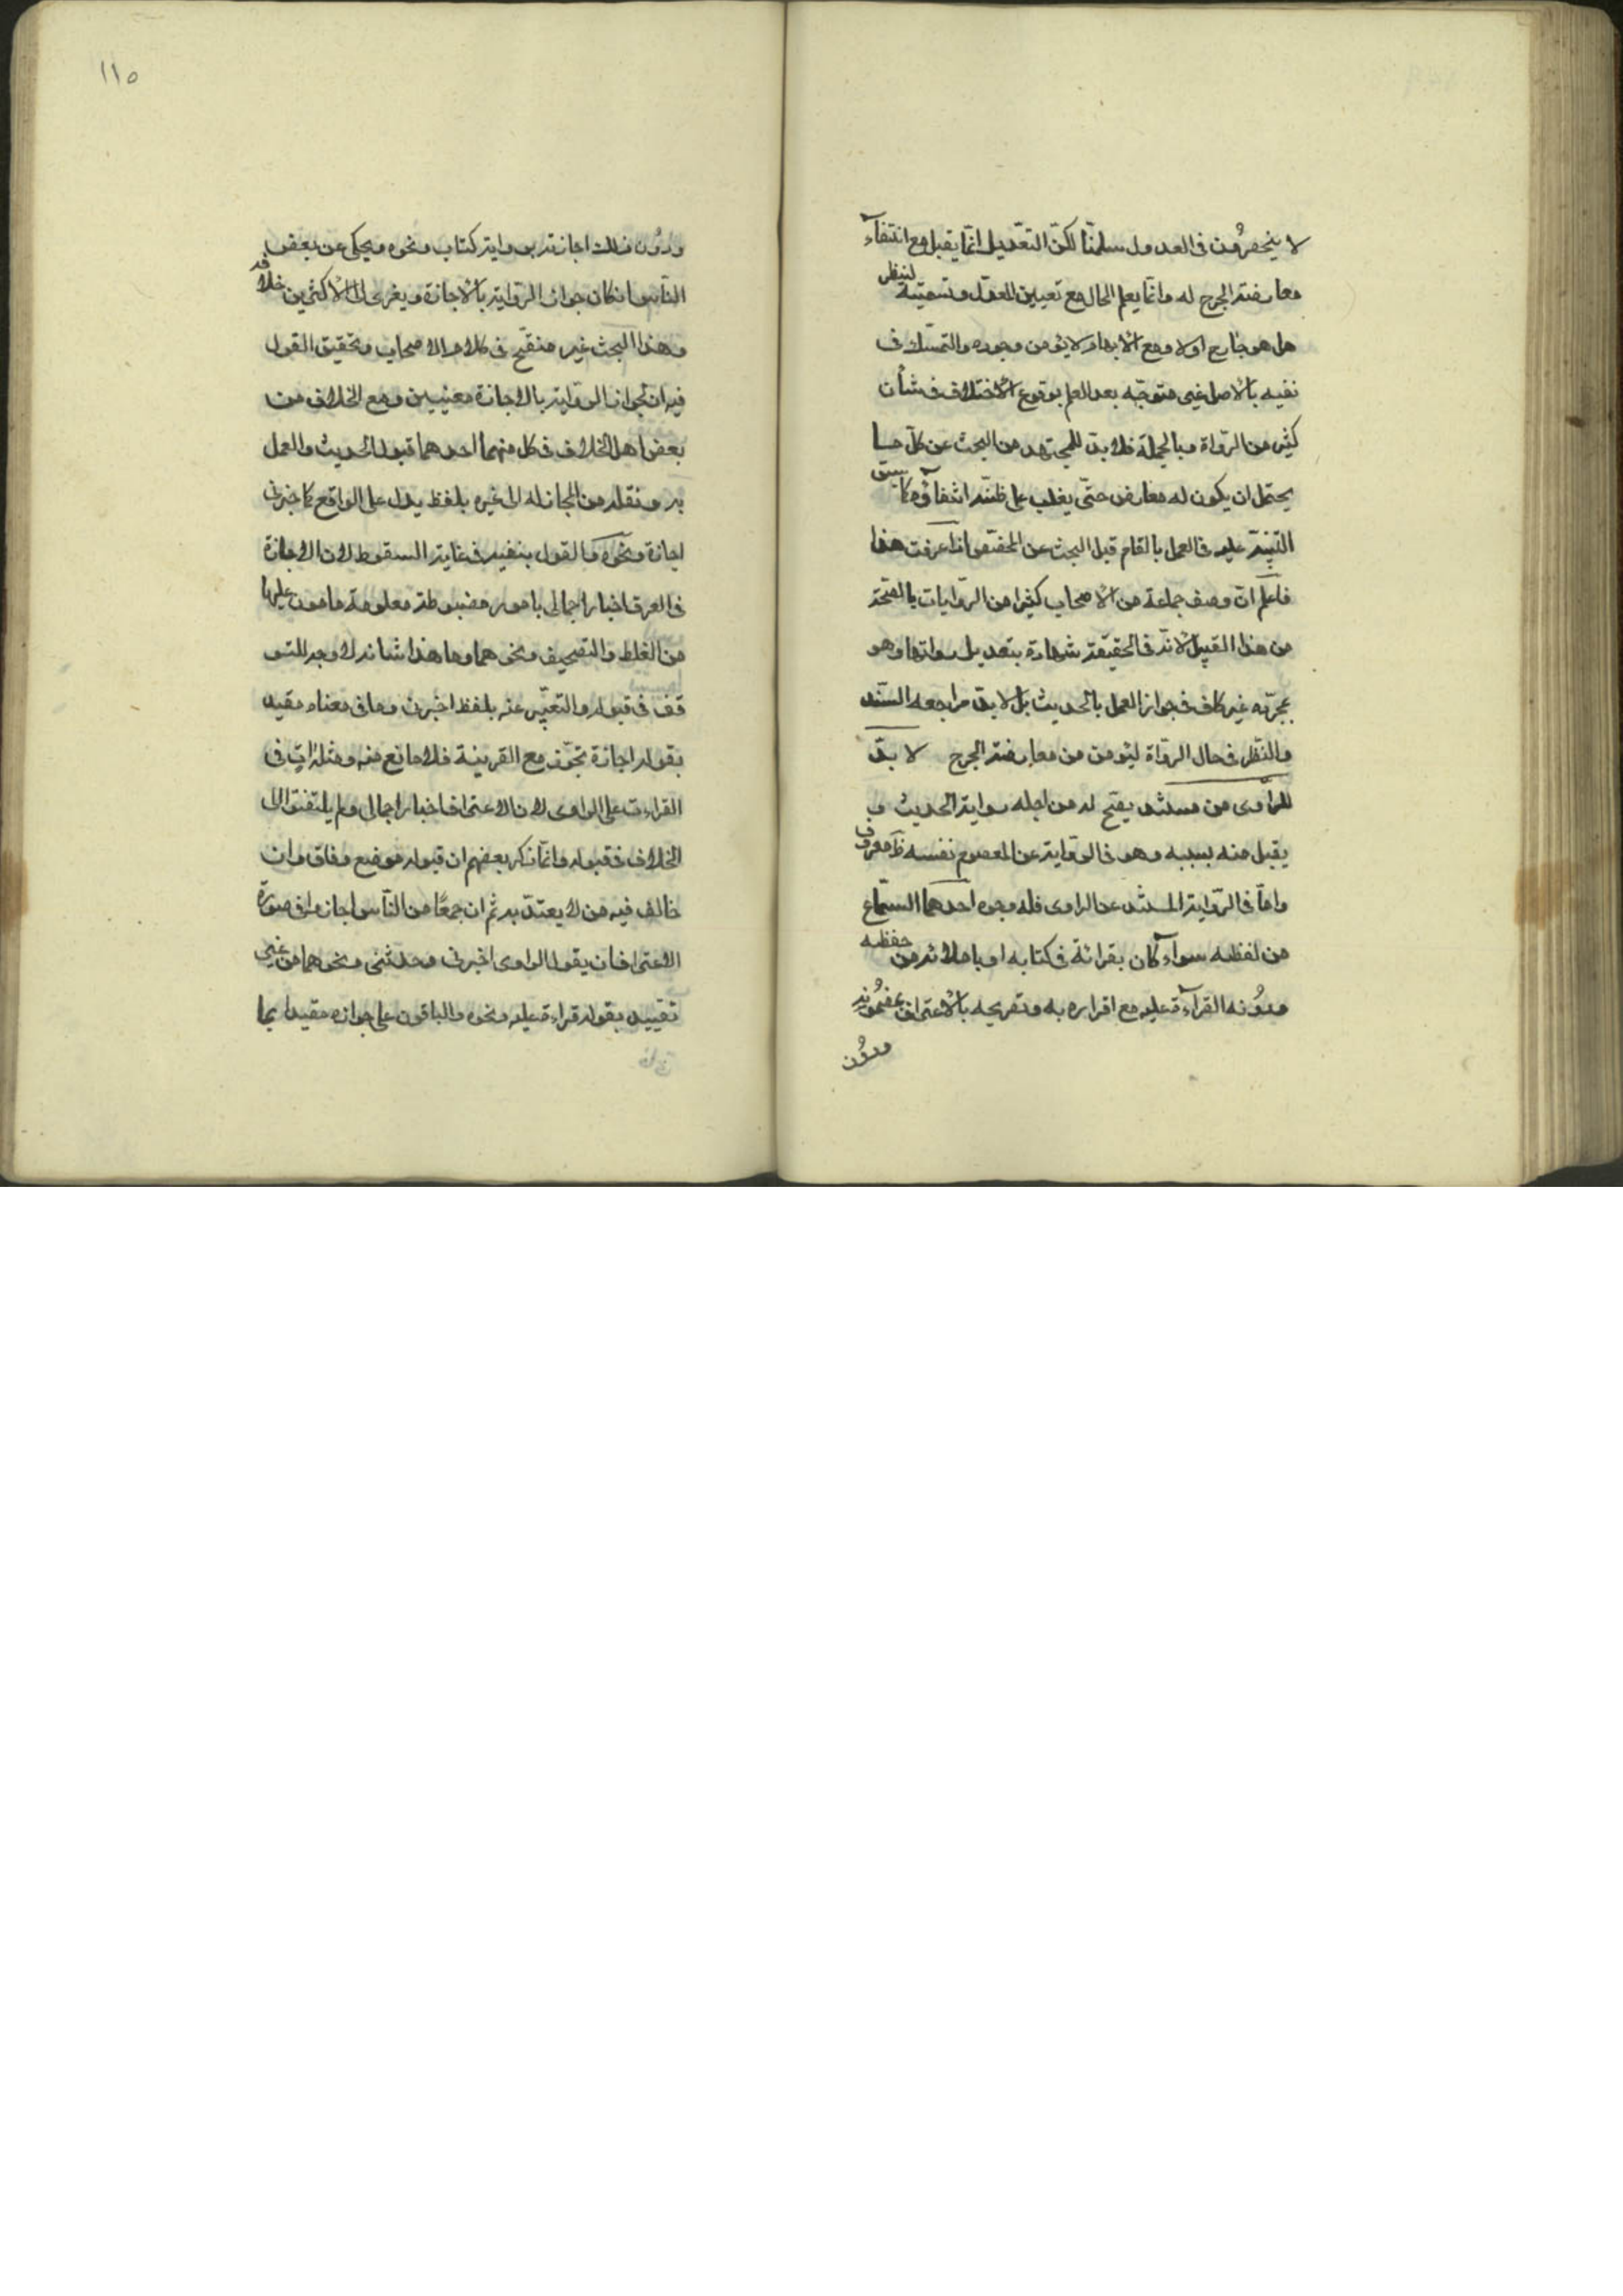 لا ينحصرون فى العدول سلمنا لكن التعديل انما يقبل مع انتفاء
معارضة الجرح له وانما يعلم الحال مع تعيين المعدل وتسميته لينظر
هل هو جارح او لا ومع الابهام لا يؤمن وجوده والتمسك فى
نفيه بالاصل غير متوجه بعد العلم بوقوع الاختلاف فى شأن
كثير من الرواة وبالجملة فلا بد للمجتهد من البحث عن كل ما
يحتمل ان يكون له معارض حتى يغلب على ظنه انتفاؤه كما سبق
التنبيه عليه فى العمل بالعام قبل البحث عن المخصص اذا عرفت هذا
فاعلم ان وصف جماعة من الاصحاب كثيرا من الروايات بالصحة
من هذا القبيل لانه فى الحقيقة شهادة بتعديل رواتها وهو
بمجرده غير كاف فى جواز العمل بالحديث بل لا بد مراجعة السند
والنظر فى حال الرواة ليؤمن من معارضة الجرح لا بد
للراوى من مستند يصح له من اجله رواية الحديث و
يقبل منه بسببه وهو فى الرواية عن المعصوم نفسه ظ معروف
واما فى الرواية المستند عن الراوى فله وجوه احدهما السماع
من لفظه سواء كان بقرائة فى كتابه او باملائه من حفظه
ودونه القراءة عليه مع اقراره به وتصريحه بالاعتراف بمضمونه
ودون
١١٥
ودون ذلك اجازته برواية كتاب ونحوه ويحكى عن بعض
الناس انكار جواز الرواية بالاجازة ويعزى الى الاكثرين خلافه
وهذا البحث غير منقح فى كلام الاصحاب وتحقيق القول
فيه ان لجواز الرواية بالاجازة معنيين وقع الخلاف من
بعض اهل الخلاف فى كل منهما احدهما قبول الحديث والعمل
به ونقله من المجاز له الى غيره بلفظ يدل على الواقع كاخبرنى
اجازة ونحوه والقول بنفيه فى غاية السقوط لان الاجازة
فى العرف اخبار اجمالى بامور مضبوطة معلومة مامون عليها
من الغلط والتصحيف ونحوهما وما هذا شانه لا وجه للتو
قف فى قبوله والتعبير عنه بلفظ اخبرنى وما فى معناه مقيد
بقوله اجازة تجوز مع القرينة فلا مانع منه ومثله ات فى
القراءة على الراوى لان الاعتراف اخبار اجمالى ولم يلتفتوا الى
الخلاف فى قبوله وانما ذكر بعضهم ان قبوله موضع وفاق وان
خالف فيه من لا يعتد به ثم ان جمعا من الناس اجازوا فى صورة
الاعتراف ان يقول الراوى اخبرنى وحدثنى ونحوهما من غير
تقييد بقوله قراءة عليه ونحوه والباقون على جوازه مقيدا بما